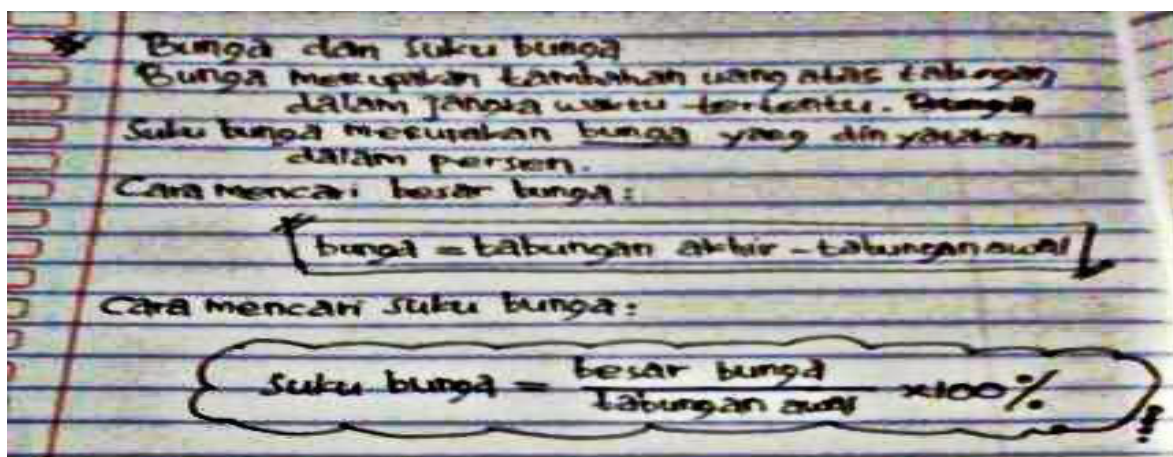 * Bunga dan suku bunga
Bunga merupakan tambahan uang atas tabungan
dalam jangka waktu tertentu.
Suku bunga merupakan bunga yang dinyatakan
dalam persen.
Cara mencari besar bunga:
bunga = tabungan akhir - tabungan awal
Cara mencari suku bunga:
suku bunga = besar bunga / tabungan awal x100%